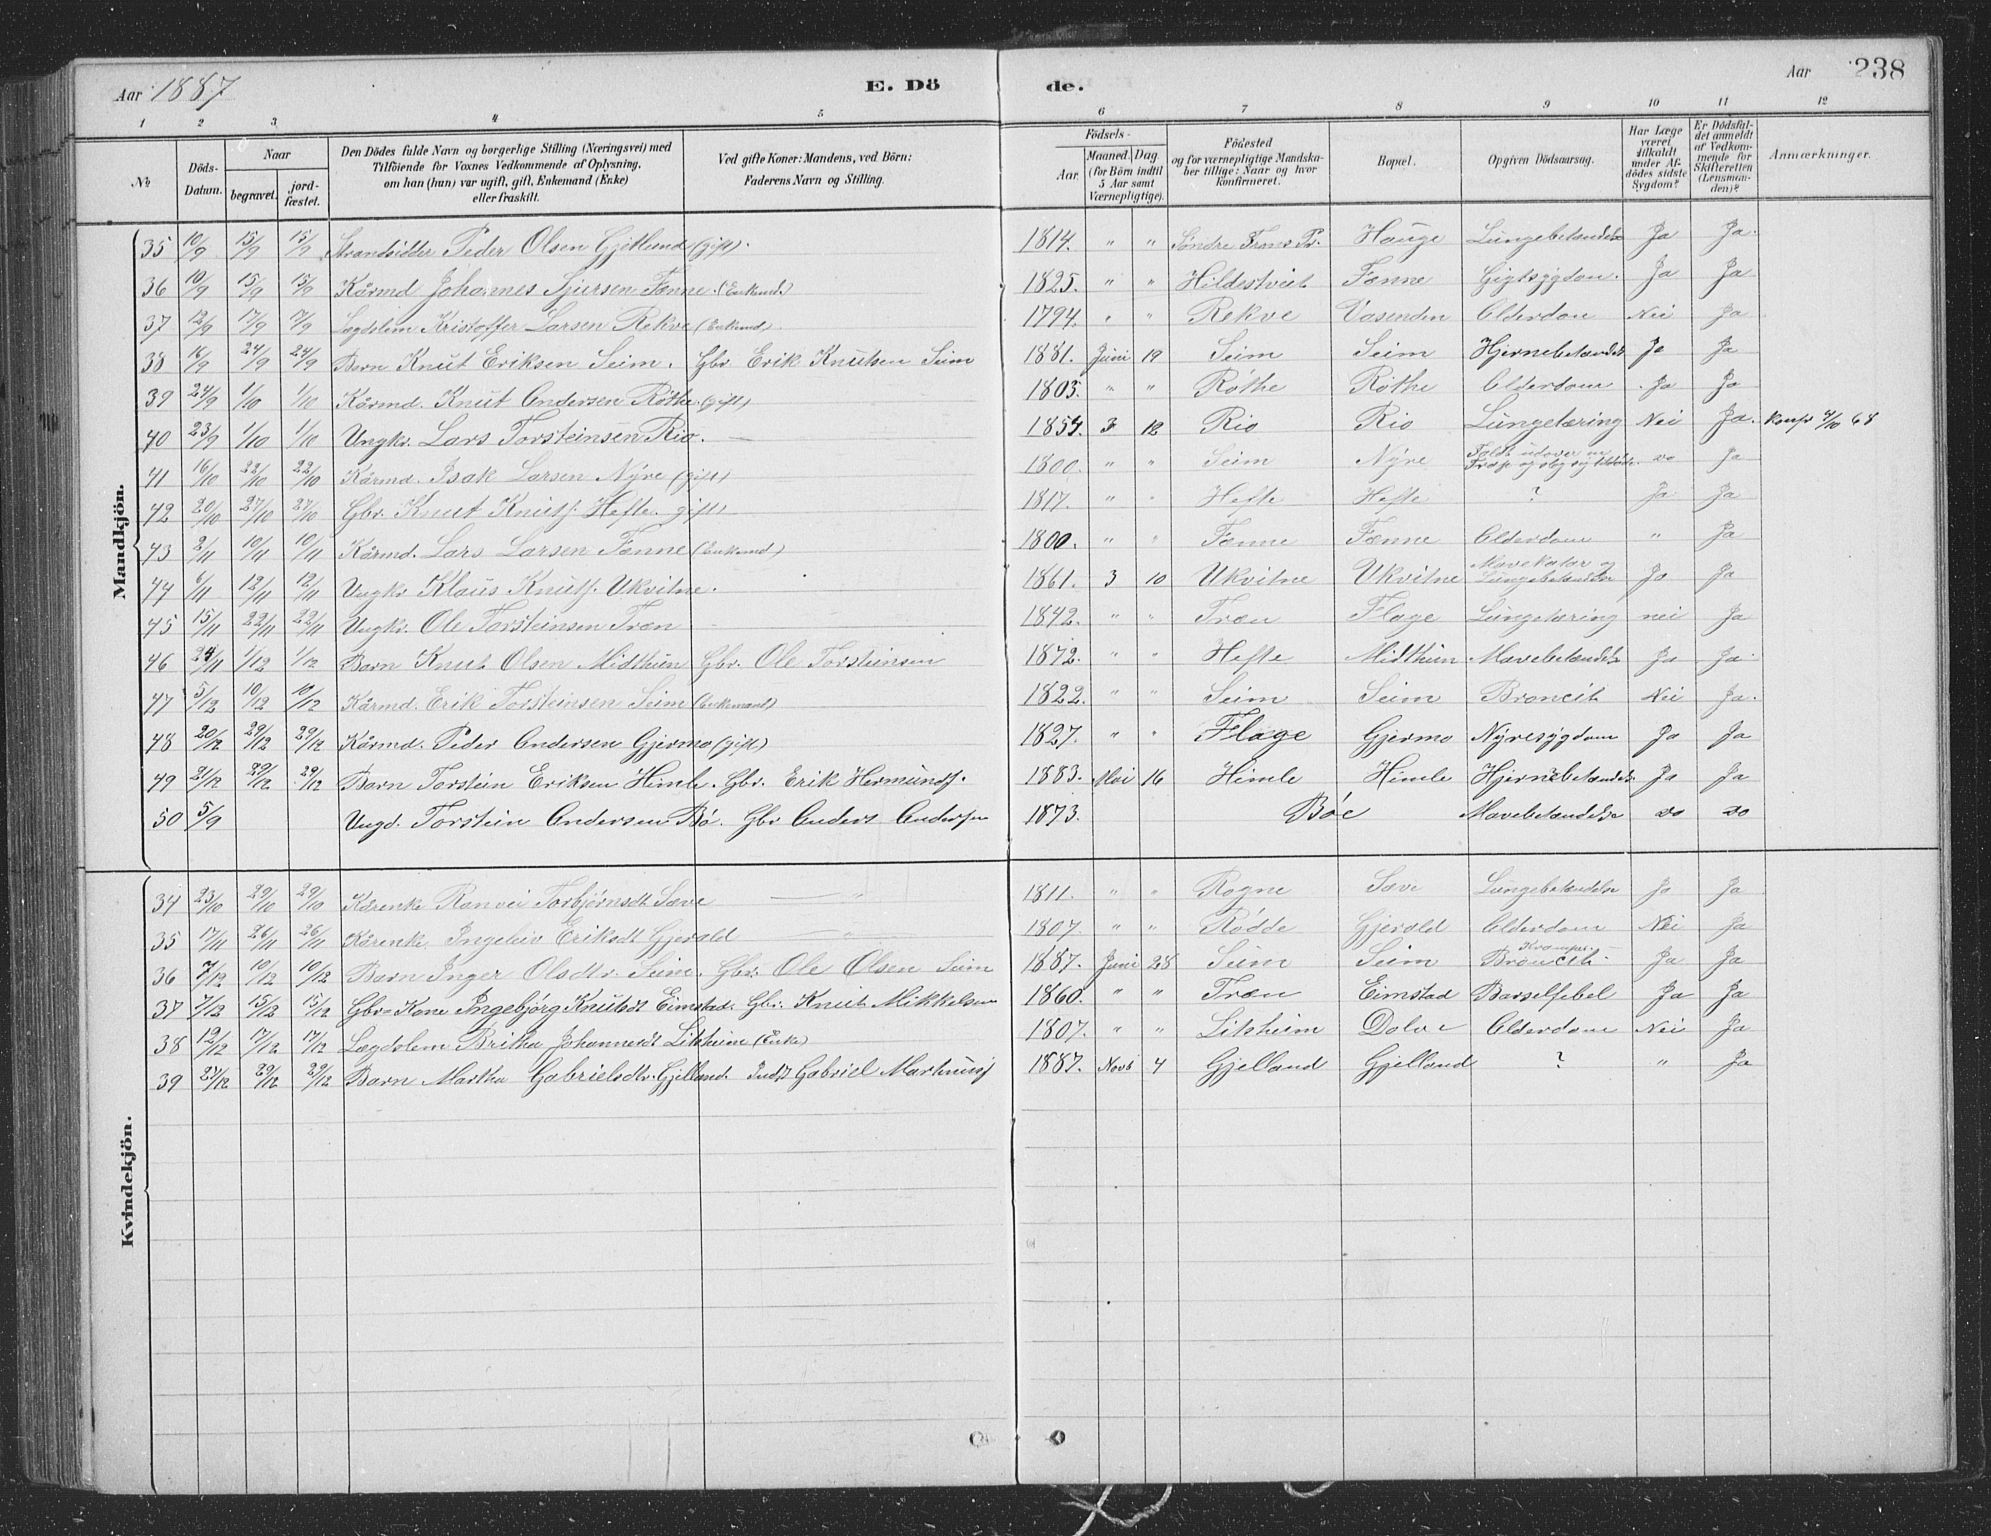 Aar 1887 E. Döde. Aar 238
1 2 3 4 5 6 7 8 9 10 11 12
No
Döds-Datum.
Naar
begravet.
jord-fæstet.
Den Dödes fulde Navn og borgerlige Stilling (Næringsvei) med
Tilföiende for Voxnes Vedkommende af Oplysning,
om han (hun) var ugift, gift, Enkemand (Enke)
eller fraskilt.
Ved gifte Koner: Mandens, ved Börn:
Faderens Navn og Stilling.
Födsels-
Aar.
Maaned. Dag.
(for Börn indtil
5 Aar samt
Værnepligtige).
Födested
og for værnepligtige Mandska-
ber tillige: Naar og hvor
konfirmeret.
Bopæl.
Opgiven Dödsaarsag.
Har Læge
været
tilkaldt
under Af-
dödes sidste
Sygdom?
Er Dödsfal-
det anmeldt
af Vedkom-
mende for
Skifteretten
(Lensman-
den)?
Anmærkninger.
Mandkjön.
35 10/9 15/9 15/9 Strandsidder Peder Olsen Gjøklund (gift). 1814. " " Søndre Hauge Lungebetændels Ja Ja.
36 10/9 15/9 15/9 Kårmd Johannes Sjursen Fenne. (Enkemd.) 1825. " " Hildestveit Fenne Gigtsygdom. Ja Ja
37 12/9 17/9 17/9 Lægdslem Kristoffer Larsen Rekve (Enkemd.) 1794. " " Rekve Vasenden Alderdom Nei Ja
38 16/9 24/9 24/9 Barn Knut Eriksen Seim. Gbr Erik Knutsen Seim 1881. Juni 19 Seim Seim Hjernebetændels Ja Ja
39 24/9 1/10 1/10 Kårmd. Knut Andersen Röthe. (gift) 1803. " " Röthe Röthe Alderdom Ja Ja
40 23/9 1/10 1/10 Ungkr. Lars Torsteinsen Rio. 1854 3 12 Rio Rio Lungetæring Nei Ja. konf 4/10 68
41 16/10 22/10 22/10 Kårmd. Isak Larsen Nyre (gift) 1800. " " Seim Nyre Faldt udover en Trap og slog sig do Ja
42 20/10 27/10 27/10 Gbr. Knut Knuts. Hefte. gift) 1817. " " Hefte Hefte ? Ja Ja
43 2/11 10/11 10/11 Kårmd. Lars Larsen Fenne (Enkemd) 1800. " " Fenne Fenne Alderdom " Ja
44 6/11 12/11 12/11 Ungkr Klaus Knuts. Ukvitne. 1861. 3 10 Ukvitne Ukvitne Mavekatar og Lungebetændelse Ja Ja
45 15/11 22/11 22/11 Ungkr. Ole Torsteinsen Træn 1842. " " Træn Flage Lungetæring nei Ja
46 24/11 1/12 1/12 Barn Knut Olsen Midthun Gbr. Ole Torsteinsen 1872. " " Hefte Midthun Mavebetændels Ja Ja
47 5/12 10/12 10/12 Kårmd. Erik Torsteinsen Seim (Enkemand) 1822. " " Seim Seim Broncit Nei Ja.
48 20/12 29/12 29/12 Kårmd. Peder Andersen Gjermo (gift) 1827. " " Flage Gjermo Nyresygdom Ja Ja
49 21/12 29/12 29/12 Barn Torstein Eriksen Himle. Gbr. Erik Hermunds. 1883. Mai 16 Himle Himle Hjernebetændels Ja Ja
50 5/9 Ungd. Torstein Andersen Bö. Gbr Anders Andersen 1873. Böe Mavebetændelse do do
Kvindekjön.
34 23/10 29/10 29/10 Kårenke Ranvei Torbjörnsdt Sæve " 1811. " " Rogne Sæve Lungebetændelse Ja Ja
35 17/11 26/11 26/11 Kårenke Ingeleiv Eriksdt Gjerald " 1807. " " Rödde Gjerald Alderdom Nei Ja
36 7/12 10/12 10/12 Barn Inger Olsdtr. Seim. Gbr. Ole Olsen Seim 1887. Juni 28 Seim Seim Krampe. Broncit. Ja Ja
37 7/12 15/12 15/12 Gbr-Kone Ingebjörg Knutsdt Eimstad. Gbr. Knut Mikkelsen 1860. " " Træn Eimstad Barselfebel Ja Ja
38 12/12 17/12 17/12 Lægdslem Britha Johannesdt Litsheim (Enke) 1807. " " Litsheim Dolve Alderdom Nei Ja
39 27/12 29/12 29/12 Barn Martha Gabrielsdtr. Gjelland. Inds Gabriel Martinus 1887. Novb 4 Gjelland Gjelland ? " Ja